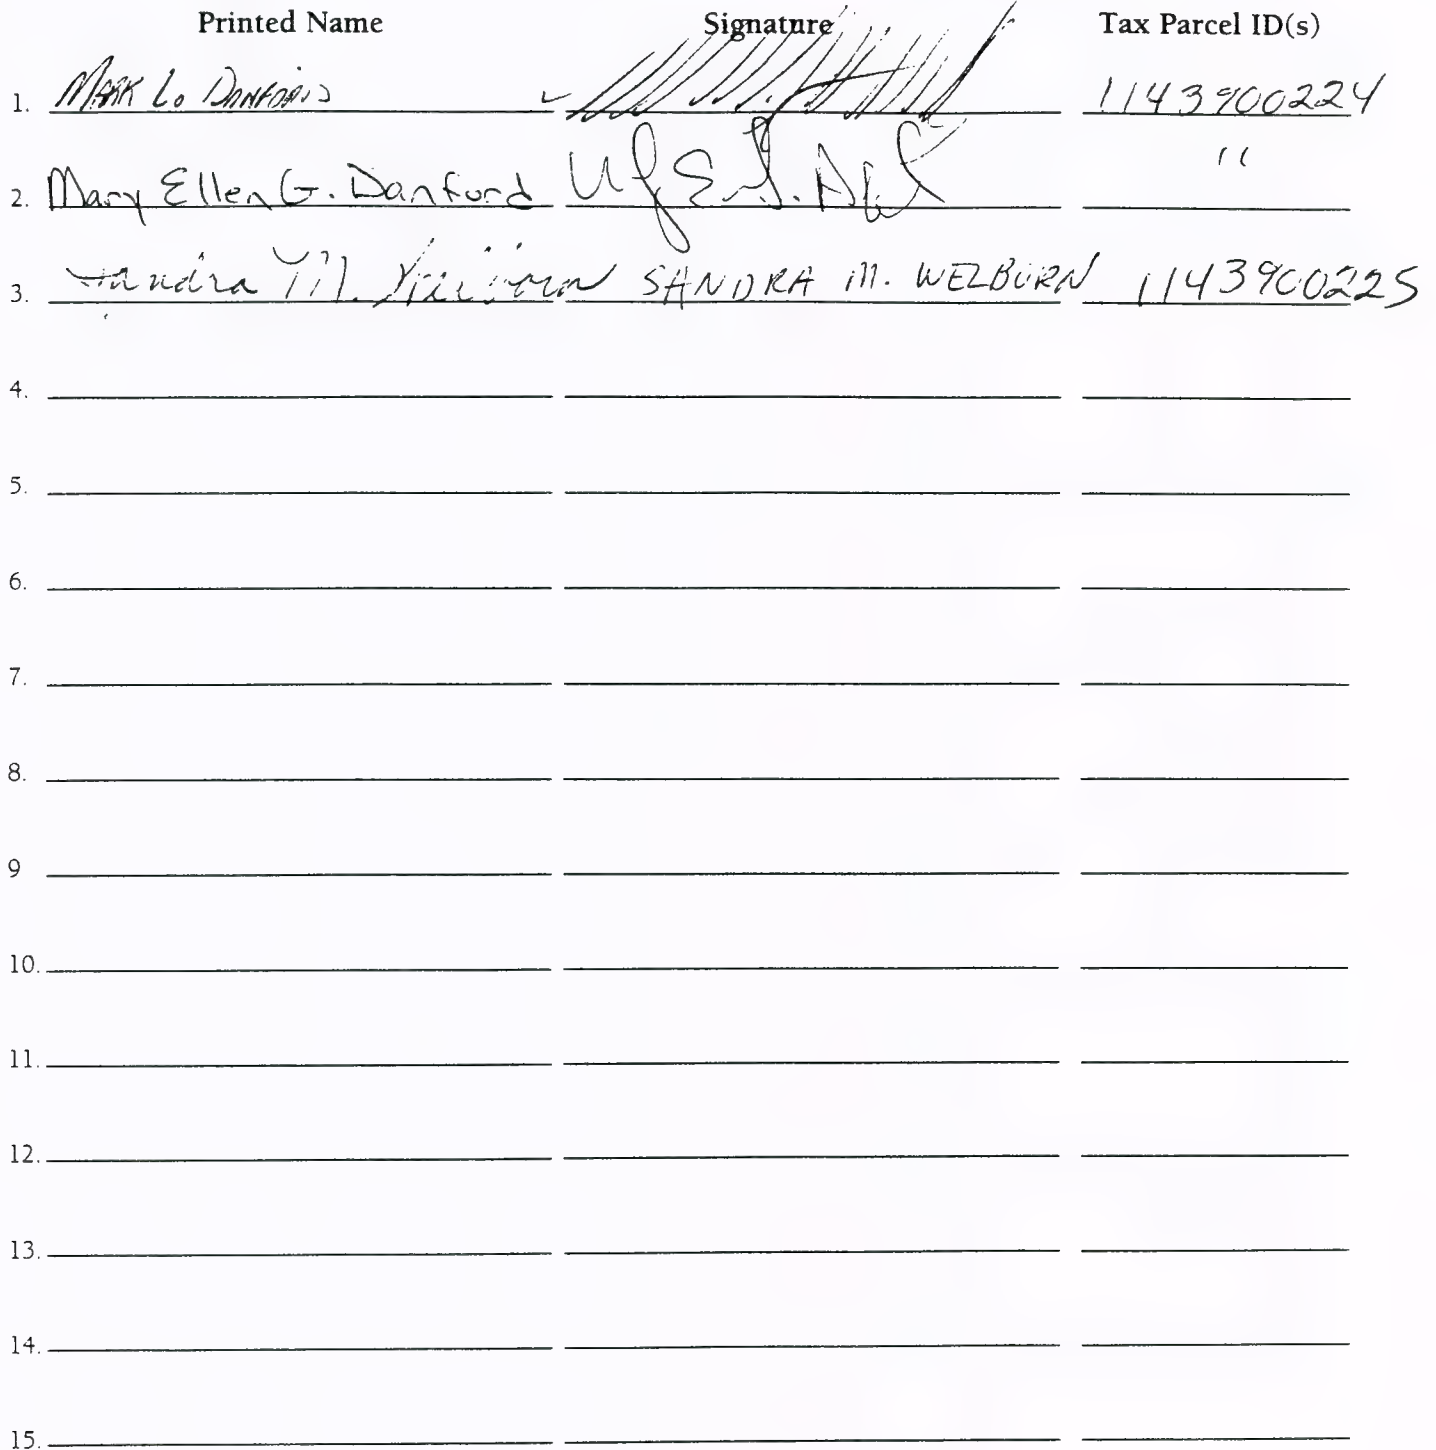 Printed Name Signature Tax Parcel ID(s)
1. MARK L. DANFORD 1143900224
2. Mary Ellen G. Danford "
3. Sandra M. Welborn SANDRA M. WELBURN 1143900225
4.
5.
6.
7.
8.
9
10.
11.
12.
13.
14.
15.